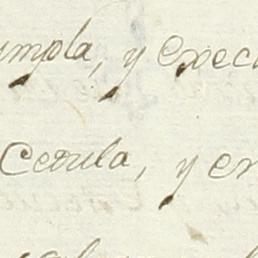 umpla, y execu
Cedula, y en